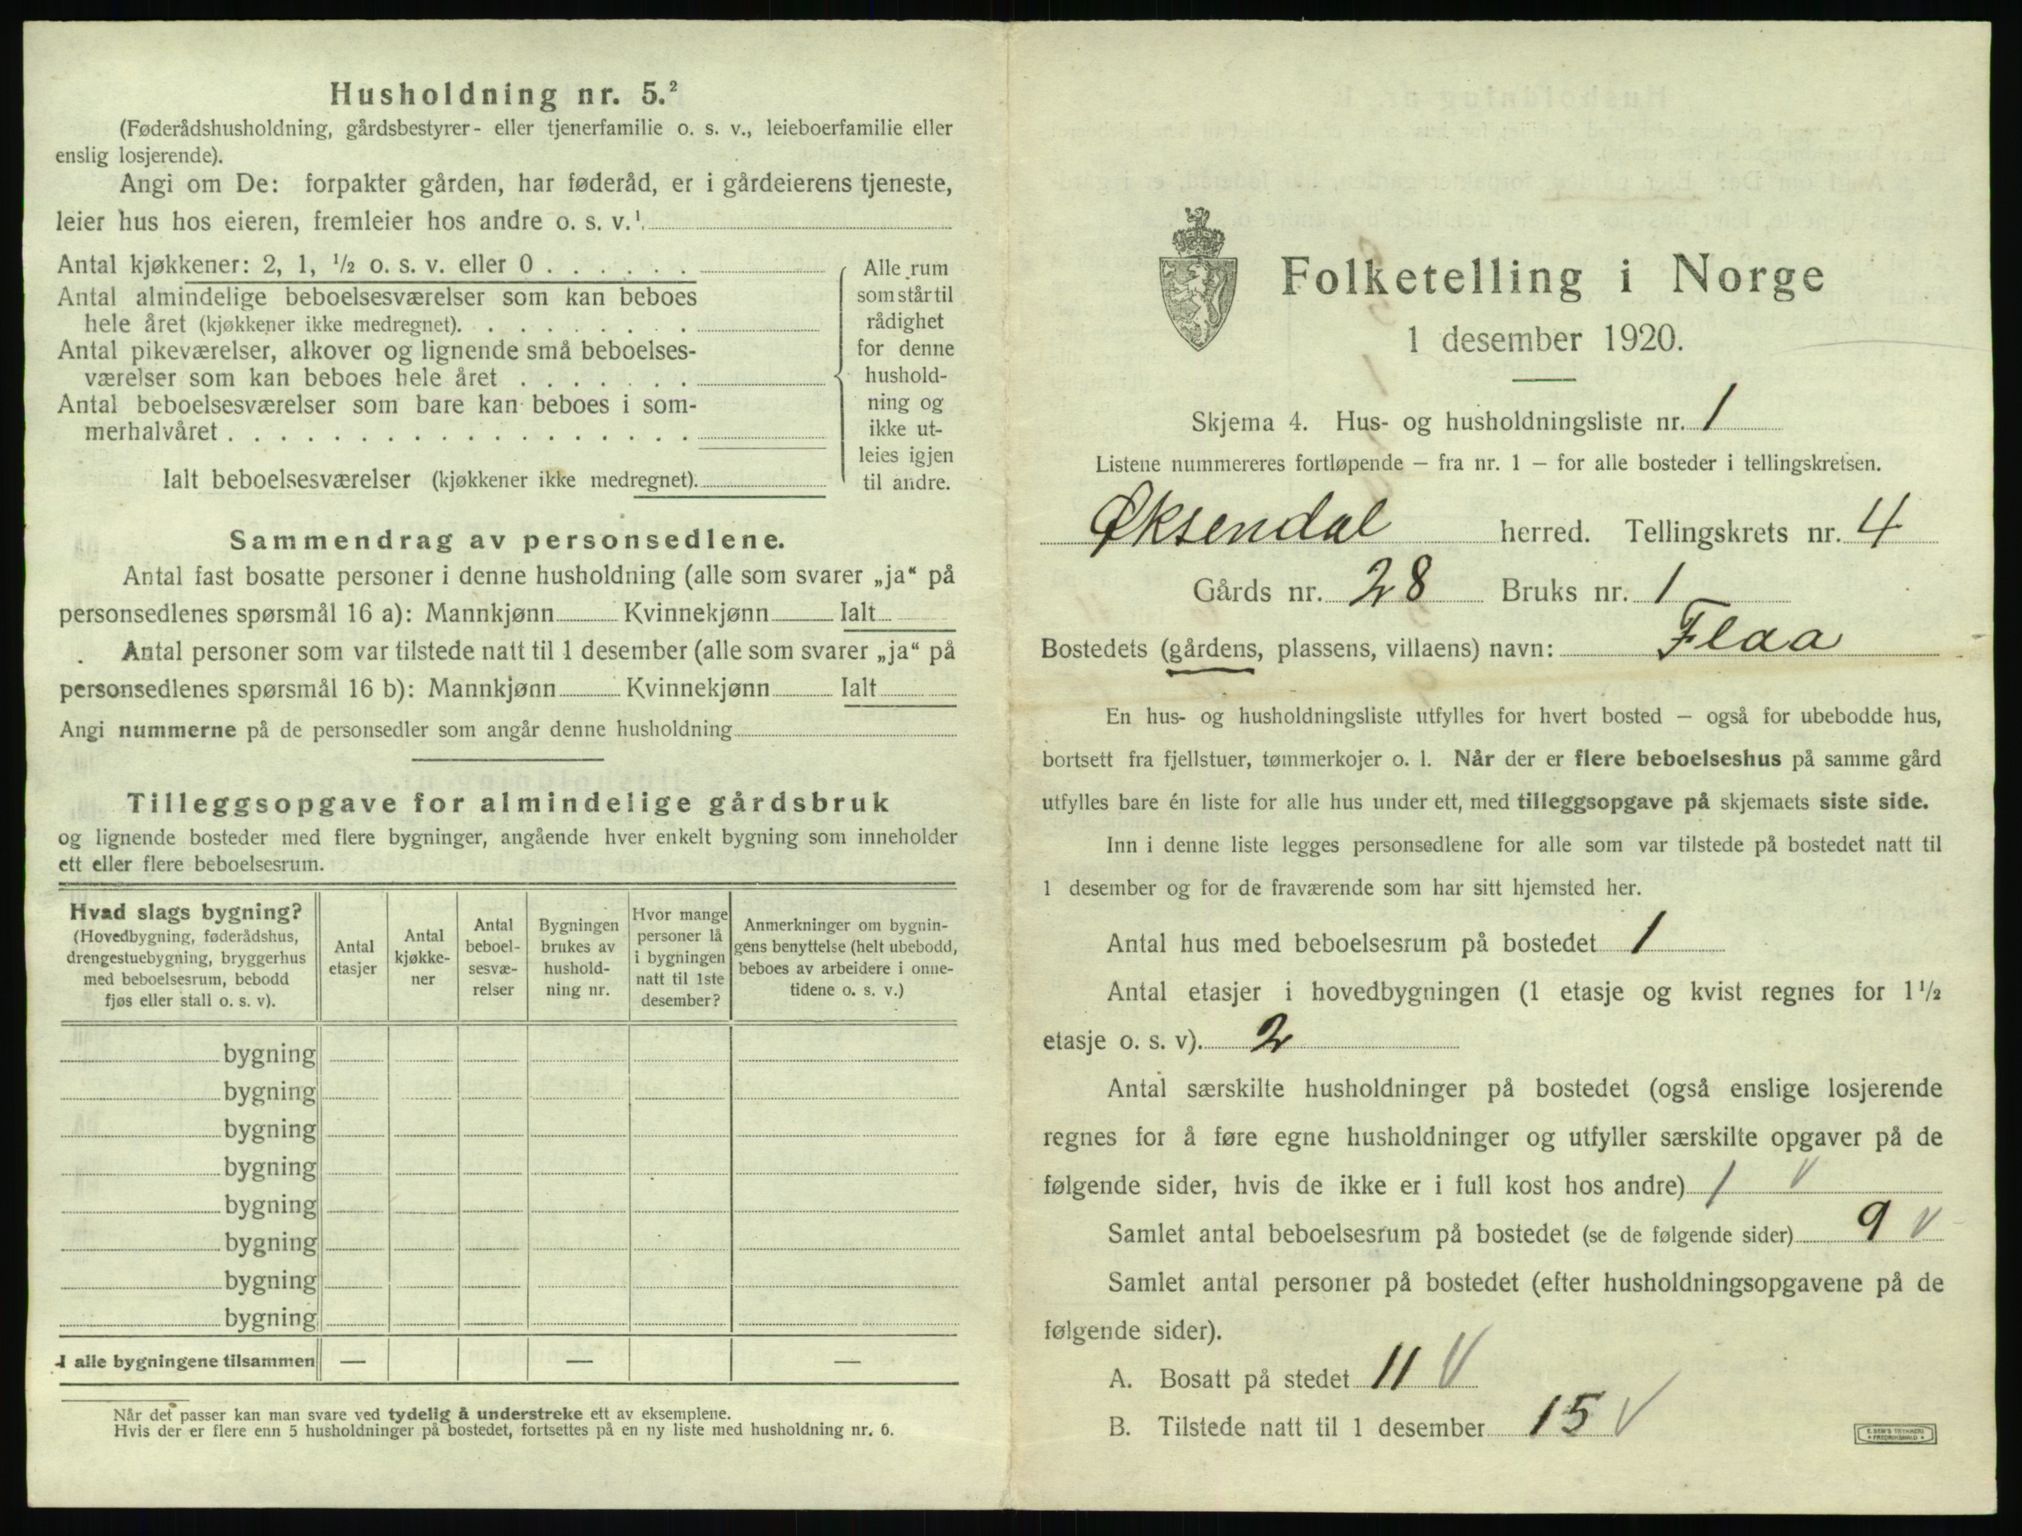 Husholdning nr. 5.²
(Føderådshusholdning, gårdsbestyrer- eller tjenerfamilie o. s. v., leieboerfamilie eller
enslig losjerende).
Angi om De: forpakter gården, har føderåd, er i gårdeierens tjeneste,
leier hus hos eieren, fremleier hos andre o. s. v.¹
Antal kjøkkener: 2, 1, ½ o. s. v. eller 0 . . . . . .
Antal almindelige beboelsesværelser som kan beboes
hele året (kjøkkener ikke medregnet). . . . . . . . .
Antal pikeværelser, alkover og lignende små beboelses-
værelser som kan beboes hele året . . . . . . .
Antal beboelsesværelser som bare kan beboes i som-
merhalvåret . . . . . . . . . . . . . . . . . .
Ialt beboelsesværelser (kjøkkener ikke medregnet).
Alle rum
som står til
rådighet
for denne
hushold-
ning og
ikke ut-
leies igjen
til andre.
Sammendrag av personsedlene.
Antal fast bosatte personer i denne husholdning (alle som svarer „ja“ på
personsedlenes spørsmål 16 a): Mannkjønn Kvinnekjønn Ialt
Antal personer som var tilstede natt til 1 desember (alle som svarer „ja“ på
personsedlenes spørsmål 16 b): Mannkjønn Kvinnekjønn Ialt
Angi nummerne på de personsedler som angår denne husholdning
Tilleggsopgave for almindelige gårdsbruk
og lignende bosteder med flere bygninger, angående hver enkelt bygning som inneholder
ett eller flere beboelsesrum.
Hvad slags bygning?
(Hovedbygning, føderådshus,
drengestuebygning, bryggerhus
med beboelsesrum, bebodd
fjøs eller stall o. s. v).
Antal
etasjer
Antal
kjøkke-
ner
Antal
beboel-
sesvæ-
relser
Bygningen
brukes av
hushold-
ning nr.
Hvor mange
personer lå
i bygningen
natt til 1ste
desember?
Anmerkninger om bygnin-
gens benyttelse (helt ubebodd,
beboes av arbeidere i onne-
tidene o. s. v.)
bygning
bygning
bygning
bygning
bygning
bygning
bygning
bygning
I alle bygningene tilsammen — — —
Når det passer kan man svare ved tydelig å understreke ett av eksemplene.
Hvis der er flere enn 5 husholdninger på bostedet, fortsettes på en ny liste med husholdning nr. 6.
Folketelling i Norge
1 desember 1920.
Skjema 4. Hus- og husholdningsliste nr. 1
Listene nummereres fortløpende — fra nr. 1 — for alle bosteder i tellingskretsen.
Øksendal herred. Tellingskrets nr. 4
Gårds nr. 28 Bruks nr. 1
Bostedets (gårdens, plassens, villaens) navn: Flaa
En hus- og husholdningsliste utfylles for hvert bosted — også for ubebodde hus,
bortsett fra fjellstuer, tømmerkojer o. l. Når der er flere beboelseshus på samme gård
utfylles bare én liste for alle hus under ett, med tilleggsopgave på skjemaets siste side.
Inn i denne liste legges personsedlene for alle som var tilstede på bostedet natt til
1 desember og for de fraværende som har sitt hjemsted her.
Antal hus med beboelsesrum på bostedet 1
Antal etasjer i hovedbygningen (1 etasje og kvist regnes for 1½
etasje o. s. v). 2
Antal særskilte husholdninger på bostedet (også enslige losjerende
regnes for å føre egne husholdninger og utfyller særskilte opgaver på de
følgende sider, hvis de ikke er i full kost hos andre) 1 v
Samlet antal beboelsesrum på bostedet (se de følgende sider) 9 v
Samlet antal personer på bostedet (efter husholdningsopgavene på de
følgende sider).
A. Bosatt på stedet 11 v
B. Tilstede natt til 1 desember 15 v